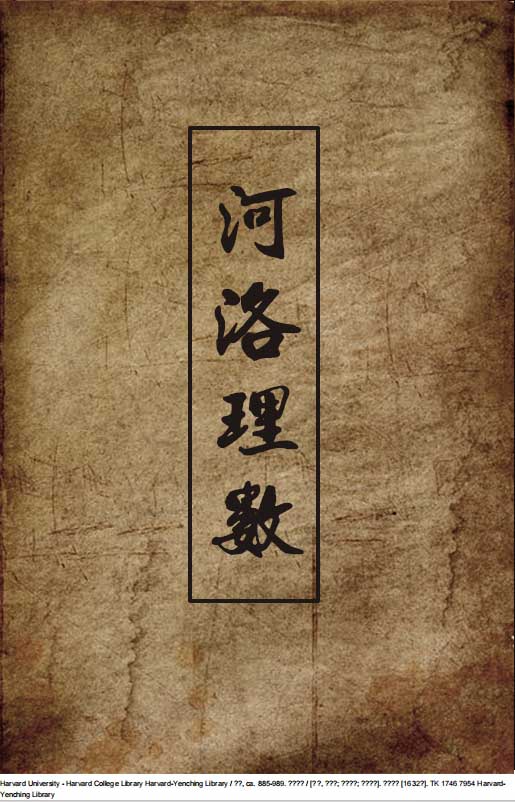 河洛理數
Harvard University - Harvard College Library Harvard-Yenching Library / ??, ca. 885-989. ???? / [??, ???; ????; ????]. ???? [1632?]. TK 1746 7954 Harvard-
Yenching Library